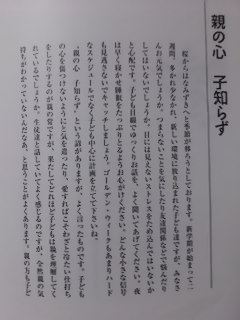 親の心　子知らず
桜からはなみずきへと季節が移ろうとしております。新学期が始まって二
週間、多かれ少なかれ、新しい環境に放り込まれた子ども達ですが、みなさ
んお元気でしょうか。つまらないことを気にしたり友達関係などで悩んだり
してはいないでしょうか。目には見えないストレスをため込んではいないか
と心配です。子ども目線でゆっくりお話を、よく聞いてあげてください。夜
は早く寝かせ睡眠をたっぷりとるようお心がけください。どんな小さな信号
も見逃さないでキャッチしましょう。ゴールデン・ウィークもあまりハード
なスケジュールでなく子ども中心に計画を立てて下さいね。
「親の心　子知らず」という諺がありますが、よく言ったものです。子ども
の心を傷つけないようにと気を遣ったり、愛すればこそわざと冷たい仕打ち
をしたりするのが親の常ですが、果たしてどれほど子どもは親を理解してく
れているでしょうか。生徒達と話していてよく感じるのですが、全然親の気
持ちがわかっていないんだなあ、と思うことがよくあります。親の方も子ど